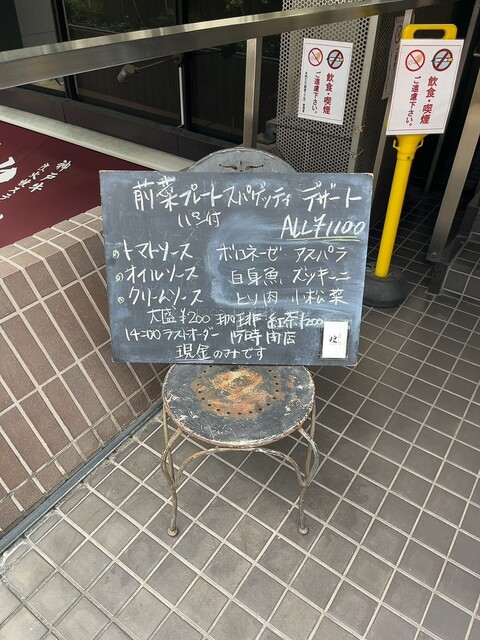 前菜プレート スパゲッティ デザート
パン付
ALL ¥1100
トマトソース ボロネーゼ アスパラ
オイルソース 白身魚 ズッキーニ
クリームソース とり肉 小松菜
大盛¥200 珈琲 紅茶¥200
14:00ラストオーダー 15時閉店
現金のみです
飲食・喫煙
ご遠慮下さい。
飲食・喫煙
ご遠慮下さい。